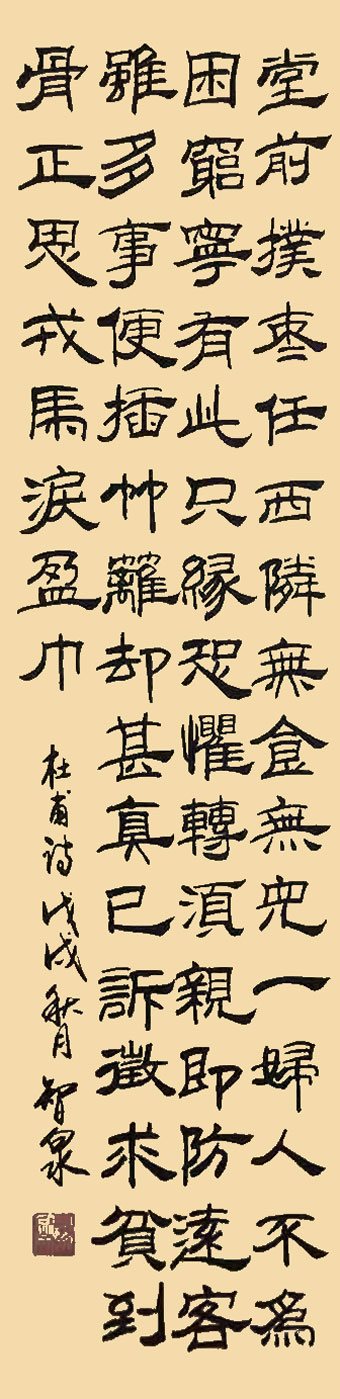 堂前撲棗任西隣無食無兒一婦人不爲
困窮寧有此只緣恐懼轉須親即防遠客
雖多事便插竹籬却甚真已訴徵求貧到
骨正思戎馬淚盈巾
杜甫诗戊戌秋月智泉